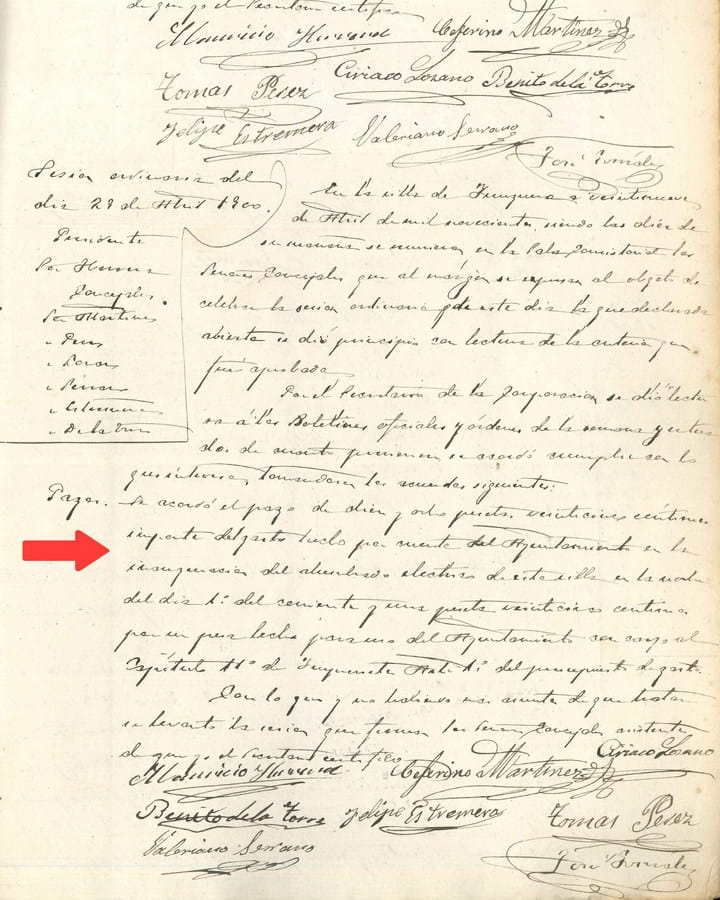 de que yo el Secretario certifico
Mauricio Herrera Ceferino Martinez
Tomas Perez Ciriaco Lozano Benito de la Torre
Felipe Estremera Valeriano Serrano
José
Sesion ordinaria del
dia 29 de Abril 1900.
Presidente
Sor Herrera
Concejales.
Sor Martinez
" Perez
" Lozano
" Serrano
" Estremera
" De la Torre
En la villa de Yunquera a veintinueve
de Abril de mil novecientos, siendo las diez de
su mañana se reunieron en la Sala Consistorial los
Señores Concejales que al margen se expresan al objeto de
celebrar la sesion ordinaria de este dia la que declarada
abierta se dió principio con lectura de la anterior que
fué aprobada
Por el Secretario de la Corporacion se dió lectu
ra á los Boletines oficiales y órdenes de la semana y entera
dos de cuanto se acordó cumplir con lo
que interesa, tomandose los acuerdos siguientes:
Pagos. Se acordó el pago de diez y ocho pesetas veinticinco centimos
importe del gasto hecho por cuenta del Ayuntamiento en la
inauguracion del alumbrado electrico de esta villa en la noche
del dia 1º. del corriente y una peseta veinticinco centimos
por un para uso del Ayuntamiento con cargo al
Capitulo 11º de Imprevistos Artº 1º. del presupuesto de gastos.
Con lo que y no habiendo mas asuntos de que tratar
se levantó la sesion que firman los Señores Concejales asistentes
de que yo el Secretario certifico
Mauricio Herrera Ceferino Martinez Ciriaco Lozano
Benito de la Torre Felipe Estremera Tomas Perez
Valeriano Serrano José